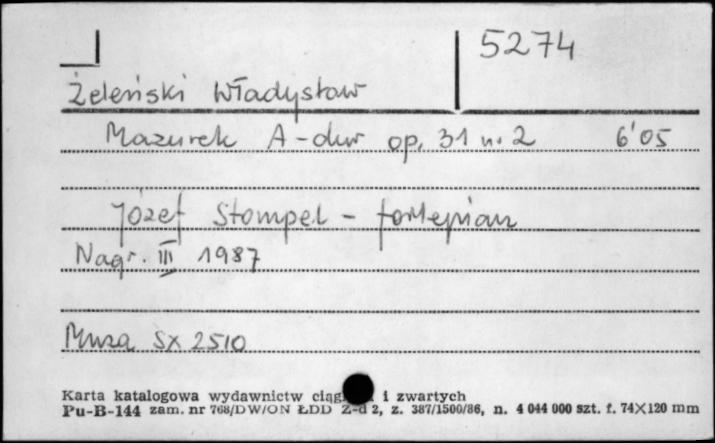 5274
Żeleński Władysław
Mazurek A-dur op. 31 nr 2 6'05
Józef Stompel - fortepian
Nagr. III 1987
Muza SX 2510
Karta katalogowa wydawnictw i zwartych
Pu-B-144 zam. nr 768/DW/ON ŁDD Z-d 2, z. 387/1500/86, n. 4 044 000 szt. f. 74×120 mm